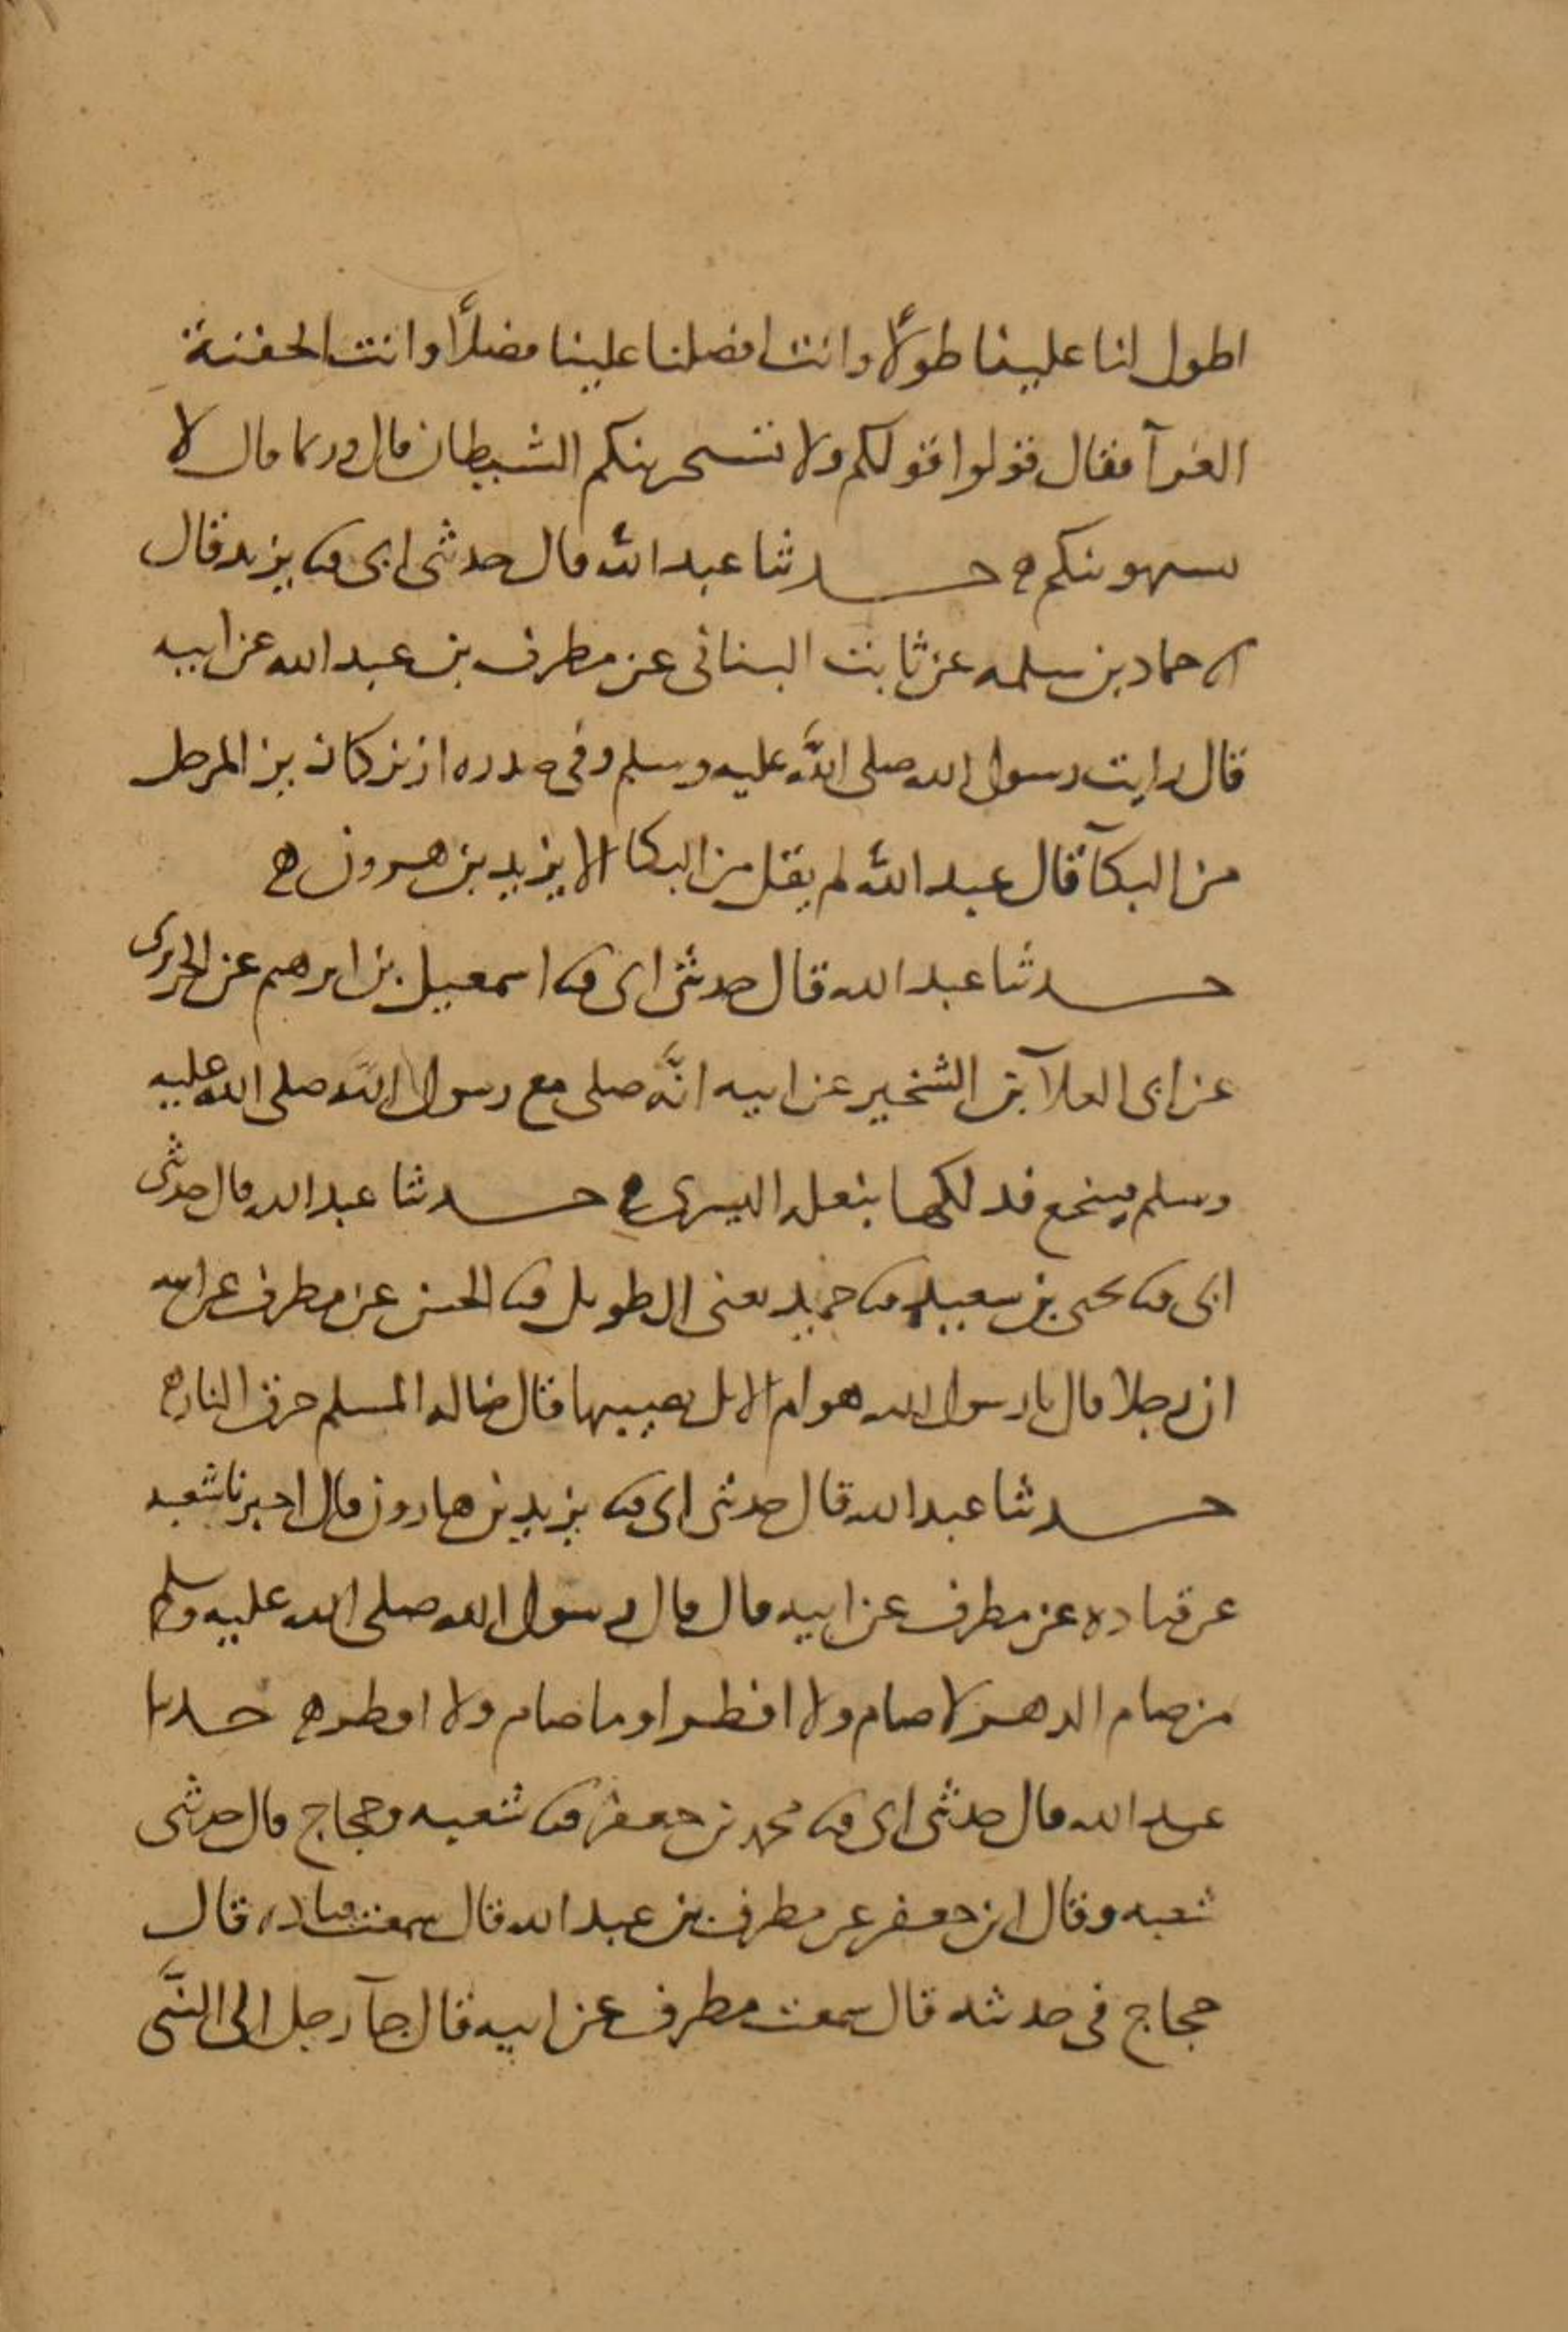 اطول لنا علينا طولا وانت افضلنا علينا فضلا وانت الجفنة
الغرآ فقال قولوا قولكم ولا تستجرينكم الشيطان قال وربما قال لا
يستهوينكم ه حدثنا عبد الله قال حدثني ابي ثنا يزيد قال
انا حماد بن سلمه عن ثابت البناني عن مطرف بن عبد الله عن ابيه
قال رايت رسول الله صلى الله عليه وسلم وفي صدره ازيز كازيز المرجل
من البكآ قال عبد الله لم يقل من البكا الا يزيد بن هرون ه
حدثنا عبد الله قال حدثني ابي ثنا اسمعيل بن ابرهيم عن الجريري
عن ابي العلآ بن الشخير عن ابيه انه صلى مع رسول الله صلى الله عليه
وسلم فتنخع فدلكها بنعله اليسرى ه حدثنا عبد الله قال حدثني
ابي ثنا يحيى بن سعيد ثنا حميد يعني الطويل ثنا الحسن عن مطرف عن ابيه
ان رجلا قال يا رسول الله هوام الابل نصيبها قال ضاله المسلم حرق النار ه
حدثنا عبد الله قال حدثني ابي ثنا يزيد بن هارون قال اخبرنا شعبه
عن قتاده عن مطرف عن ابيه قال قال رسول الله صلى الله عليه وسلم
من صام الدهر لا صام ولا افطر او ما صام ولا افطر ه حدثنا
عبد الله قال حدثني ابي ثنا محمد بن جعفر ثنا شعبه وحجاج قال حدثني
شعبه وقال ابن جعفر عن مطرف بن عبد الله قال سمعت قتاده قال
حجاج في حديثه قال سمعت مطرف عن ابيه قال جآ رجل الى النبي